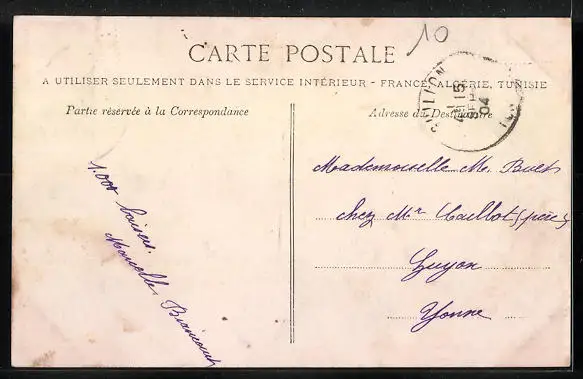 10
CARTE POSTALE
A UTILISER SEULEMENT DANS LE SERVICE INTÉRIEUR - FRANCE, ALGÉRIE, TUNISIE
Partie réservée à la Correspondance
Adresse du Destinataire
15
04
1.000 baisers.
Marcelle
Mademoiselle M.
chez Mr Caillot (père)
Guyon
Yonne